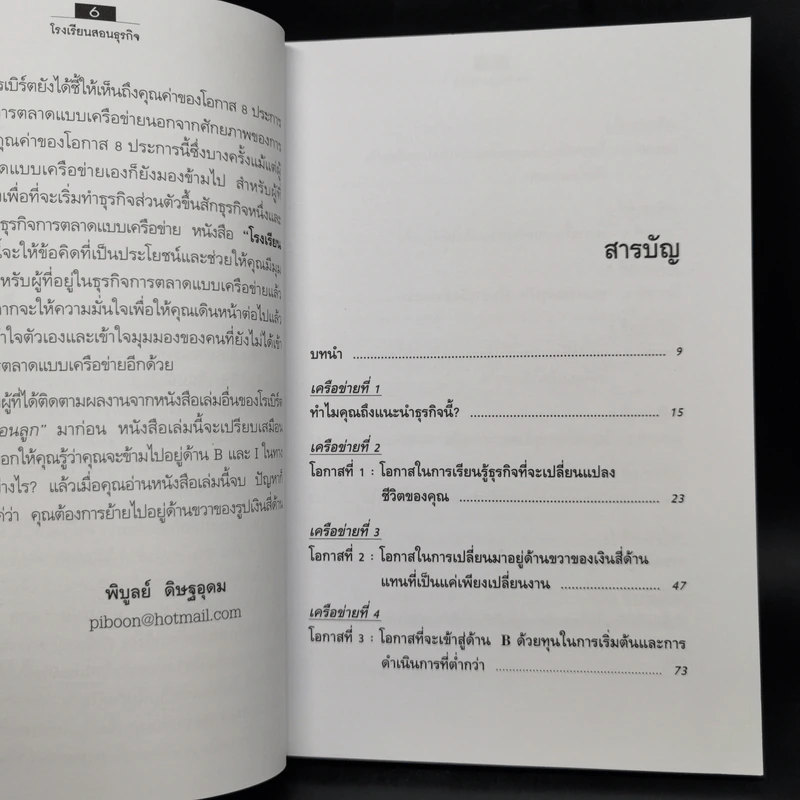 6
โรงเรียนสอนธุรกิจ
เบิร์ตยังได้ชี้ให้เห็นถึงคุณค่าของโอกาส 8 ประการ
การตลาดแบบเครือข่ายนอกจากศักยภาพของการ
คุณค่าของโอกาส 8 ประการนี้ซึ่งบางครั้งแม้แต่ผู้
ตลาดแบบเครือข่ายเองก็ยังมองข้ามไป สำหรับผู้ที่
เพื่อที่จะเริ่มทำธุรกิจส่วนตัวขึ้นสักธุรกิจหนึ่งและ
ธุรกิจการตลาดแบบเครือข่าย หนังสือ "โรงเรียน
จะให้ข้อคิดที่เป็นประโยชน์และช่วยให้คุณมีมุม
หรับผู้ที่อยู่ในธุรกิจการตลาดแบบเครือข่ายแล้ว
จากจะให้ความมั่นใจเพื่อให้คุณเดินหน้าต่อไปแล้ว
าใจตัวเองและเข้าใจมุมมองของคนที่ยังไม่ได้เข้า
ตลาดแบบเครือข่ายอีกด้วย
ผู้ที่ได้ติดตามผลงานจากหนังสือเล่มอื่นของโรเบิร์ต
อนลูก" มาก่อน หนังสือเล่มนี้จะเปรียบเสมือน
อกให้คุณรู้ว่าคุณจะข้ามไปอยู่ด้าน B และ I ในทาง
างไร? แล้วเมื่อคุณอ่านหนังสือเล่มนี้จบ ปัญหาก็
ค่ว่า คุณต้องการย้ายไปอยู่ด้านขวาของรูปเงินสี่ด้าน
พิบูลย์ ดิษฐอุดม
piboon@hotmail.com
สารบัญ
บทนำ ........................................ 9
เครือข่ายที่ 1
ทำไมคุณถึงแนะนำธุรกิจนี้? ........................................ 15
เครือข่ายที่ 2
โอกาสที่ 1 : โอกาสในการเรียนรู้ธุรกิจที่จะเปลี่ยนแปลง
ชีวิตของคุณ ........................................ 23
เครือข่ายที่ 3
โอกาสที่ 2 : โอกาสในการเปลี่ยนมาอยู่ด้านขวาของเงินสี่ด้าน
แทนที่เป็นแค่เพียงเปลี่ยนงาน ........................................ 47
เครือข่ายที่ 4
โอกาสที่ 3 : โอกาสที่จะเข้าสู่ด้าน B ด้วยทุนในการเริ่มต้นและการ
ดำเนินการที่ต่ำกว่า ........................................ 73